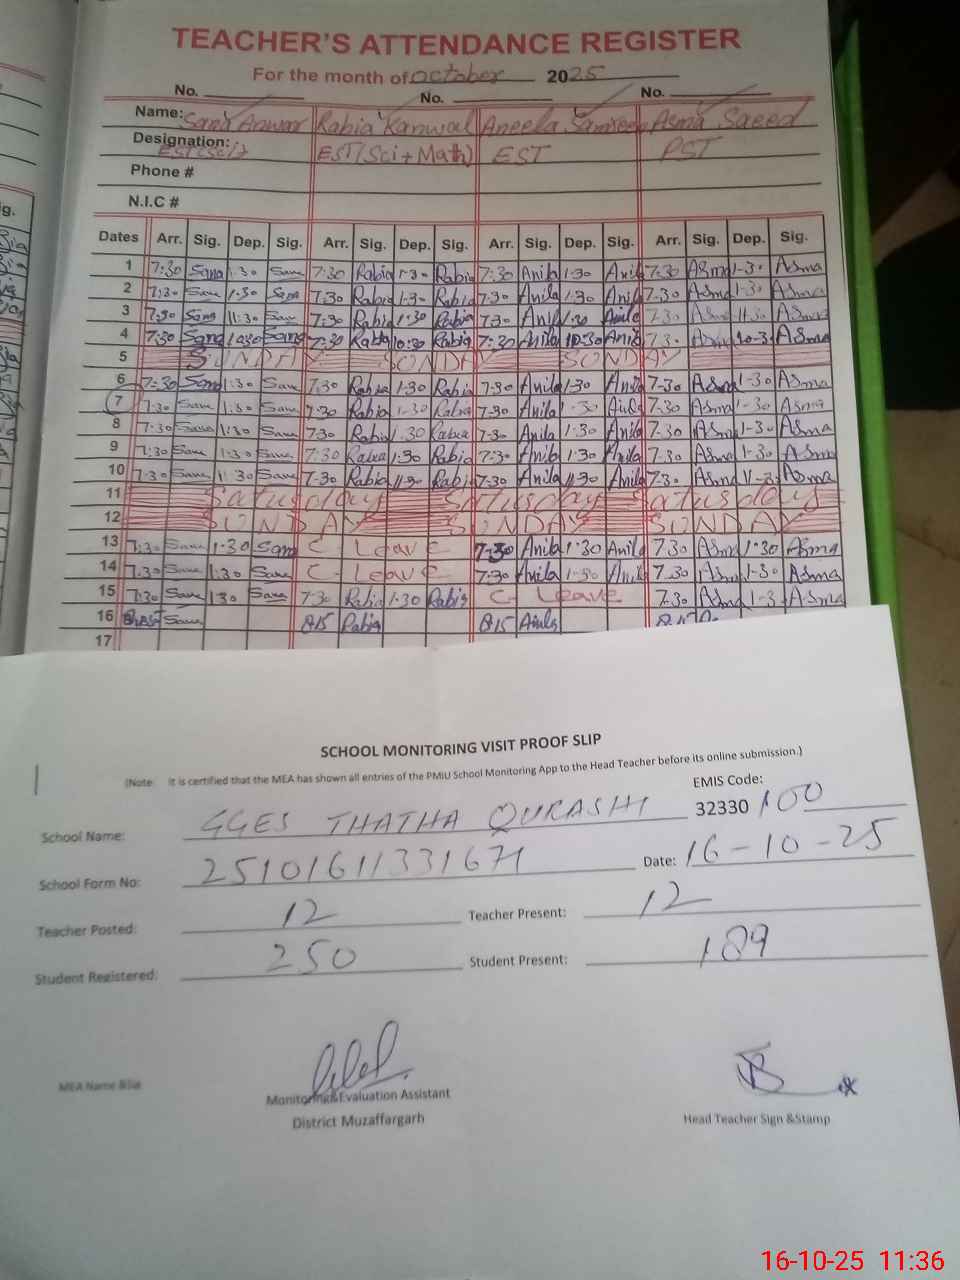 TEACHER'S ATTENDANCE REGISTER
For the month of October 2025
No. No. No.
Name: Sana Anwar Rabia Kanwal Aneela Asma Saeed
Designation: EST(Sci) EST(Sci+Math) EST PST
Phone #
N.I.C #
Dates Arr. Sig. Dep. Sig. Arr. Sig. Dep. Sig. Arr. Sig. Dep. Sig. Arr. Sig. Dep. Sig.
1 7:30 Sana 1:30 Sana 7:30 Rabia 1-30 Rabia 7:30 Anila 1:30 Anila 7-30 Asma 1-30 Asma
2 7:30 Sana 1:30 Sana 7:30 Rabia 1-30 Rabia 7-30 Anila 1:30 Anila 7-30 Asma 1-30 Asma
3 7:30 Sana 11:30 Sana 7:30 Rabia 1:30 Rabia 7:30 Anila 1:30 Anila 7:30 Asma 11-30 Asma
4 7:30 Sana 10:30 Sana 7:30 Rabia 10:30 Rabia 7:30 Anila 10:30 Anila 7.30 Asma 10-30 Asma
5 SUNDAY SUNDAY SUNDAY
6 7:30 Sana 1:30 Sana 7:30 Rabia 1:30 Rabia 7-30 Anila 1:30 Anila 7-30 Asma 1-30 Asma
7 7:30 Sana 1:30 Sana 7:30 Rabia 1-30 Rabia 7-30 Anila 1-30 Anila 7.30 Asma 1-30 Asma
8 7:30 Sana 1:30 Sana 7:30 Rabia 1:30 Rabia 7-30 Anila 1:30 Anila 7.30 Asma 1-30 Asma
9 7:30 Sana 1:30 Sana 7:30 Rabia 1:30 Rabia 7:30 Anila 1:30 Anila 7.30 Asma 1-30 Asma
10 7:30 Sana 11:30 Sana 7-30 Rabia 11:30 Rabia 7:30 Anila 11:30 Anila 7.30 Asma Asma
11 Saturday Saturday Saturday
12 SUNDAY SUNDAY SUNDAY
13 7:30 Sana 1-30 Sana C- Leave 7-30 Anila 1:30 Anila 7.30 Asma 1:30 Asma
14 7:30 Sana 1:30 Sana C- Leave 7:30 Anila 1-30 Anila 7.30 Asma 1-30 Asma
15 7:30 Sana 1:30 Sana 7:30 Rabia 1:30 Rabia C- Leave 7.30 Asma 1-3 Asma
16 Sana 8:15 Rabia 8:15 Anila 8:15
17
SCHOOL MONITORING VISIT PROOF SLIP
(Note: It is certified that the MEA has shown all entries of the PMIU School Monitoring App to the Head Teacher before its online submission.)
EMIS Code:
School Name: GGES THATHA QURASHI 32330100
School Form No: 25101611331671 Date: 16-10-25
Teacher Posted: 12 Teacher Present: 12
Student Registered: 250 Student Present: 189
MEA Name &Sig
Monitoring&Evaluation Assistant
District Muzaffargarh
Head Teacher Sign &Stamp
16-10-25 11:36